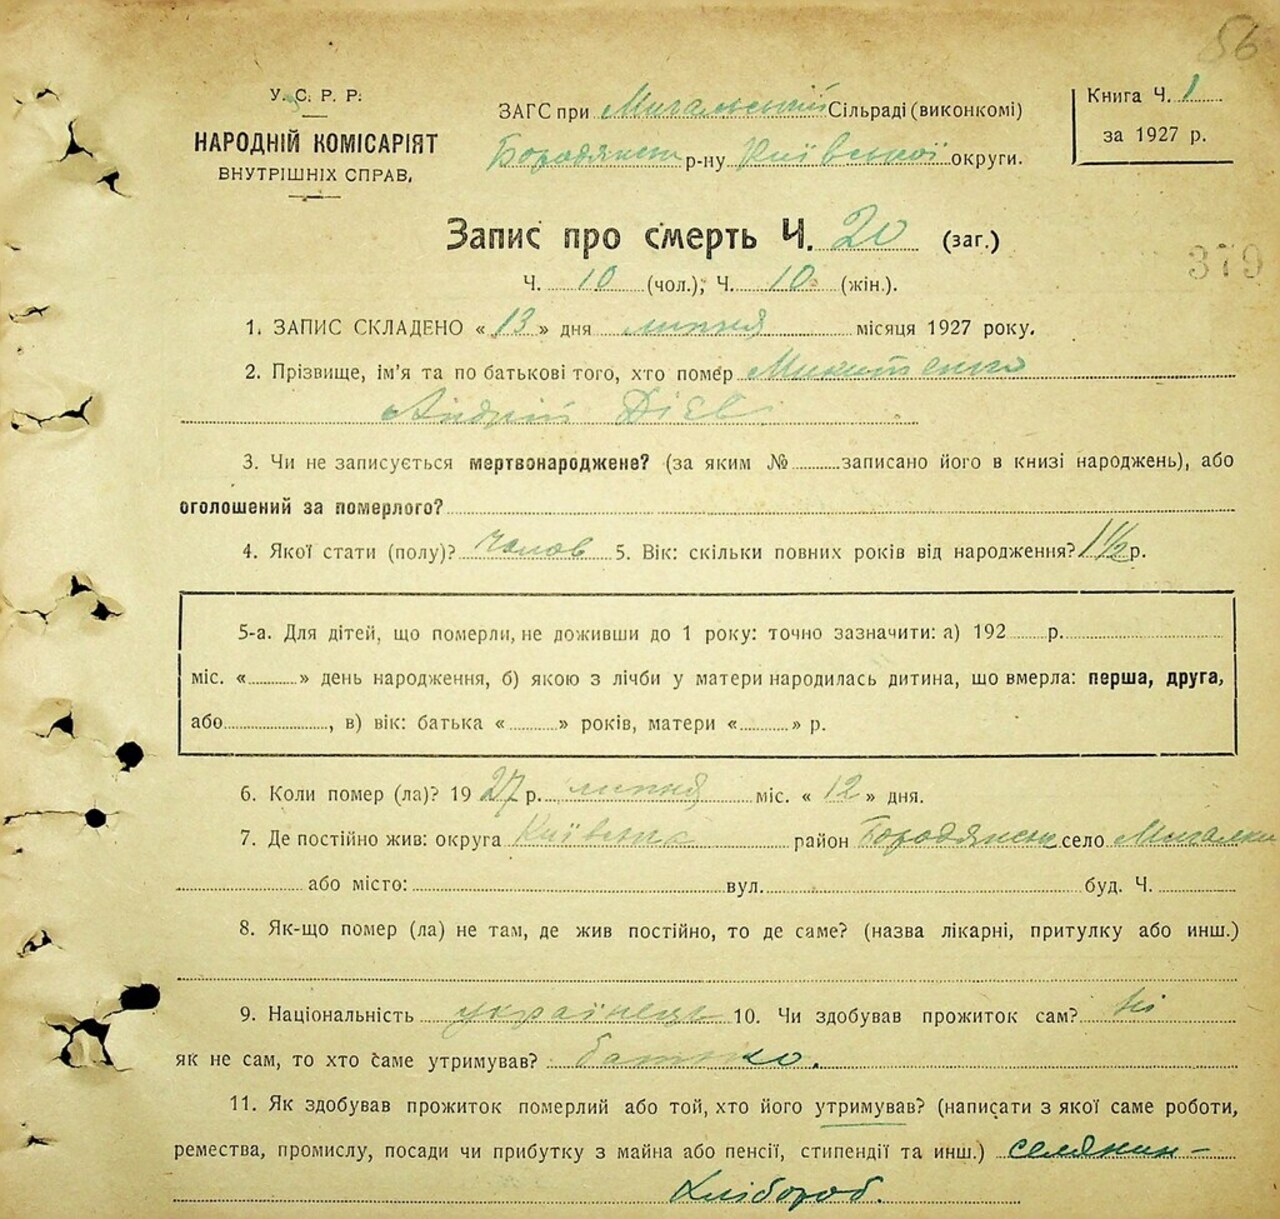 56
У. С. Р. Р.
НАРОДНІЙ КОМІСАРІЯТ
ВНУТРІШНІХ СПРАВ,
ЗАГС при Мигальській Сільраді (виконкомі)
Бородянськ р-ну Київської округи.
Книга Ч. 1
за 1927 р.
Запис про смерть Ч. 20 (заг.)
379
Ч. 10 (чол.); Ч. 10 (жін.).
1. ЗАПИС СКЛАДЕНО « 13 » дня липня місяця 1927 року.
2. Прізвище, ім'я та по батькові того, хто помер Микитенко
Андрій
3. Чи не записується мертвонароджене? (за яким № записано його в книзі народжень), або
оголошений за померлого?
4. Якої стати (полу)? чолов 5. Вік: скільки повних років від народження? 1 1/2 р.
5-а. Для дітей, що померли, не доживши до 1 року: точно зазначити: а) 192 р.
міс. « » день народження, б) якою з лічби у матери народилась дитина, що вмерла: перша, друга,
або , в) вік: батька « » років, матери « » р.
6. Коли помер (ла)? 19 27 р. липня міс. « 12 » дня.
7. Де постійно жив: округа Київська район Бородянськ село Мигалки
або місто: вул. буд. Ч.
8. Як-що помер (ла) не там, де жив постійно, то де саме? (назва лікарні, притулку або инш.)
9. Національність українець 10. Чи здобував прожиток сам? Ні
як не сам, то хто саме утримував? батько.
11. Як здобував прожиток померлий або той, хто його утримував? (написати з якої саме роботи,
ремества, промислу, посади чи прибутку з майна або пенсії, стипендії та инш.) селянин -
хлібороб.